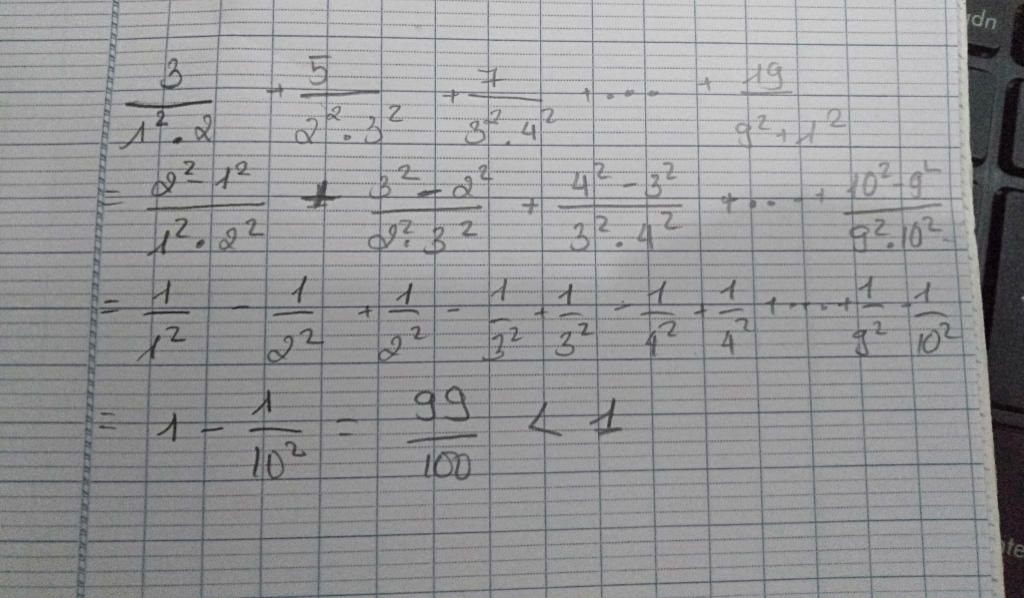 3/(1².2) + 5/(2².3²) + 7/(3².4²) + .... + 19/(9²+1²)
= (2²-1²)/(1².2²) + (3²-2²)/(2².3²) + (4²-3²)/(3².4²) + .... + (10²-9²)/(9².10²)
= 1/1² - 1/2² + 1/2² - 1/3² + 1/3² - 1/4² + 1/4² + .... + 1/9² - 1/10²
= 1 - 1/10² = 99/100 < 1